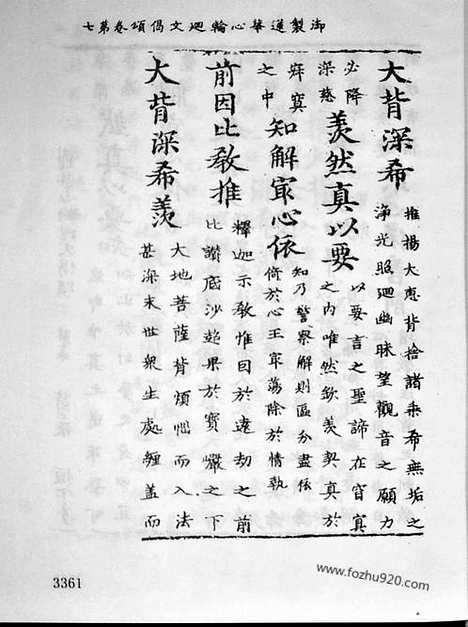 御製蓮華心輪迴文偈頌卷第七
大背深希
推揚大惠背捨諸乘希無垢之
淨光照迴幽昧望觀音之願力
必降
深慈
羨然真以要
以要言之聖諦在窅冥
之内唯然欽羨契真於
寂寞
之中
知解冣心依
知乃警察解則區分盡依
倚於心王冣蕩除於情執
前因比教推
釋迦示教惟因於遠劫之前
比讚底沙超果於寶巖之下
大背深希羨
大地菩薩背煩惱而入法
甚深末世衆生處纏蓋而
3361
www.fozhu920.com